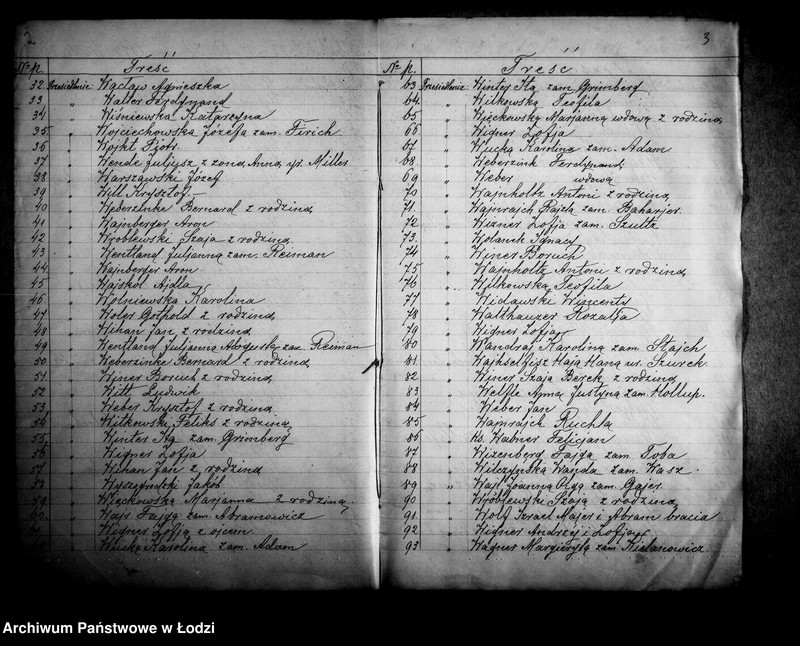 2
№ p. Treść
32. Przesiedlenie Wacław Agnieszka
33 " Walter Ferdynand
34 " Wiśniewska Katarzyna
35. " Wojciechowska Józefa zam. Firich
36 " Wojkt Piotr.
37 " Wende Juljusz z żoną Anną ur. Miller
38 " Warszawski Józef
39 " Will Krysztof
40 " Weberzinke Bernard z rodziną
41 " Wajnberger Aron
42 " Wróblewski Szaja z rodziną
43 " Wentland Juljanna zam. Reiman
44 " Wajnberger Aron
45 " Wajskol Ajdla
46 " Wolniewska Karolina
47 " Woler Gothold z rodziną
48 " Wihan Jan z rodziną
49 " Wentland Juljanna Augusta zam. Reiman
50 " Weberzinke Bernard z rodziną
51 " Winer Boruch z rodziną
52 " Witt Ludwik
53 " Weber Krysztof z rodziną
54 " Witkowski Feliks z rodziną
55 " Winter Ita zam. Grimberg
56 " Wigner Zofja
57 " Wihan Jan z rodziną
58 " Wyszogrodzki Jakób
59 " Więckowska Marjanna z rodziną
60 " Wajs Fajga zam. Abramowicz
" Wigner Zofja z ojcem
" Wucka Karolina zam. Adam
3
№ p. Treść
63 Przesiedlenie Winter Ita zam. Grimberg
64. " Witkowska Teofila
65 " Więckowska Marjanna wdowa z rodziną
66 " Wigner Zofja
67 " Wucka Karolina zam. Adam
68 " Weberzink Ferdynand
69 " Weber wdowa
70 " Wajnholtz Antoni z rodziną
71. " Wajnrajch Rajzla zam. Bakarjer
72 " Wizner Zofja zam. Szultz
73. " Wolanek Ignacy
74 " Winer Boruch
75 " Wajnholtz Antoni z rodziną
76 " Witkowska Teofila
77 " Widawski Wincenty
78 " Walthauzer Rozalja
79 " Wigner Zofja
80 " Wandraj Karolina zam. Stajch
81. " Wajkselfisz Haja Hana ur. Szurek
82 " Winer Szaja Berek z rodziną
83 " Welfle Anna Justyna zam. Hollup.
84 " Weber Jan
85 " Wajnrajch Ruchla
86 " ks. Wabner Felicjan
87 " Wizenberg Fajga zam. Toba
88 " Wilczyńska Wanda zam. Wasz.
89 " Wajs Joanna Olga zam. Gajer
90 " Wróblewski Szaja z rodziną
91 " Wolf Israel Majer i Abram bracia
92 " Wigner Andrzej i Zofja
93 " Wagner Margierjta zam. Kielanowicz.
Archiwum Państwowe w Łodzi